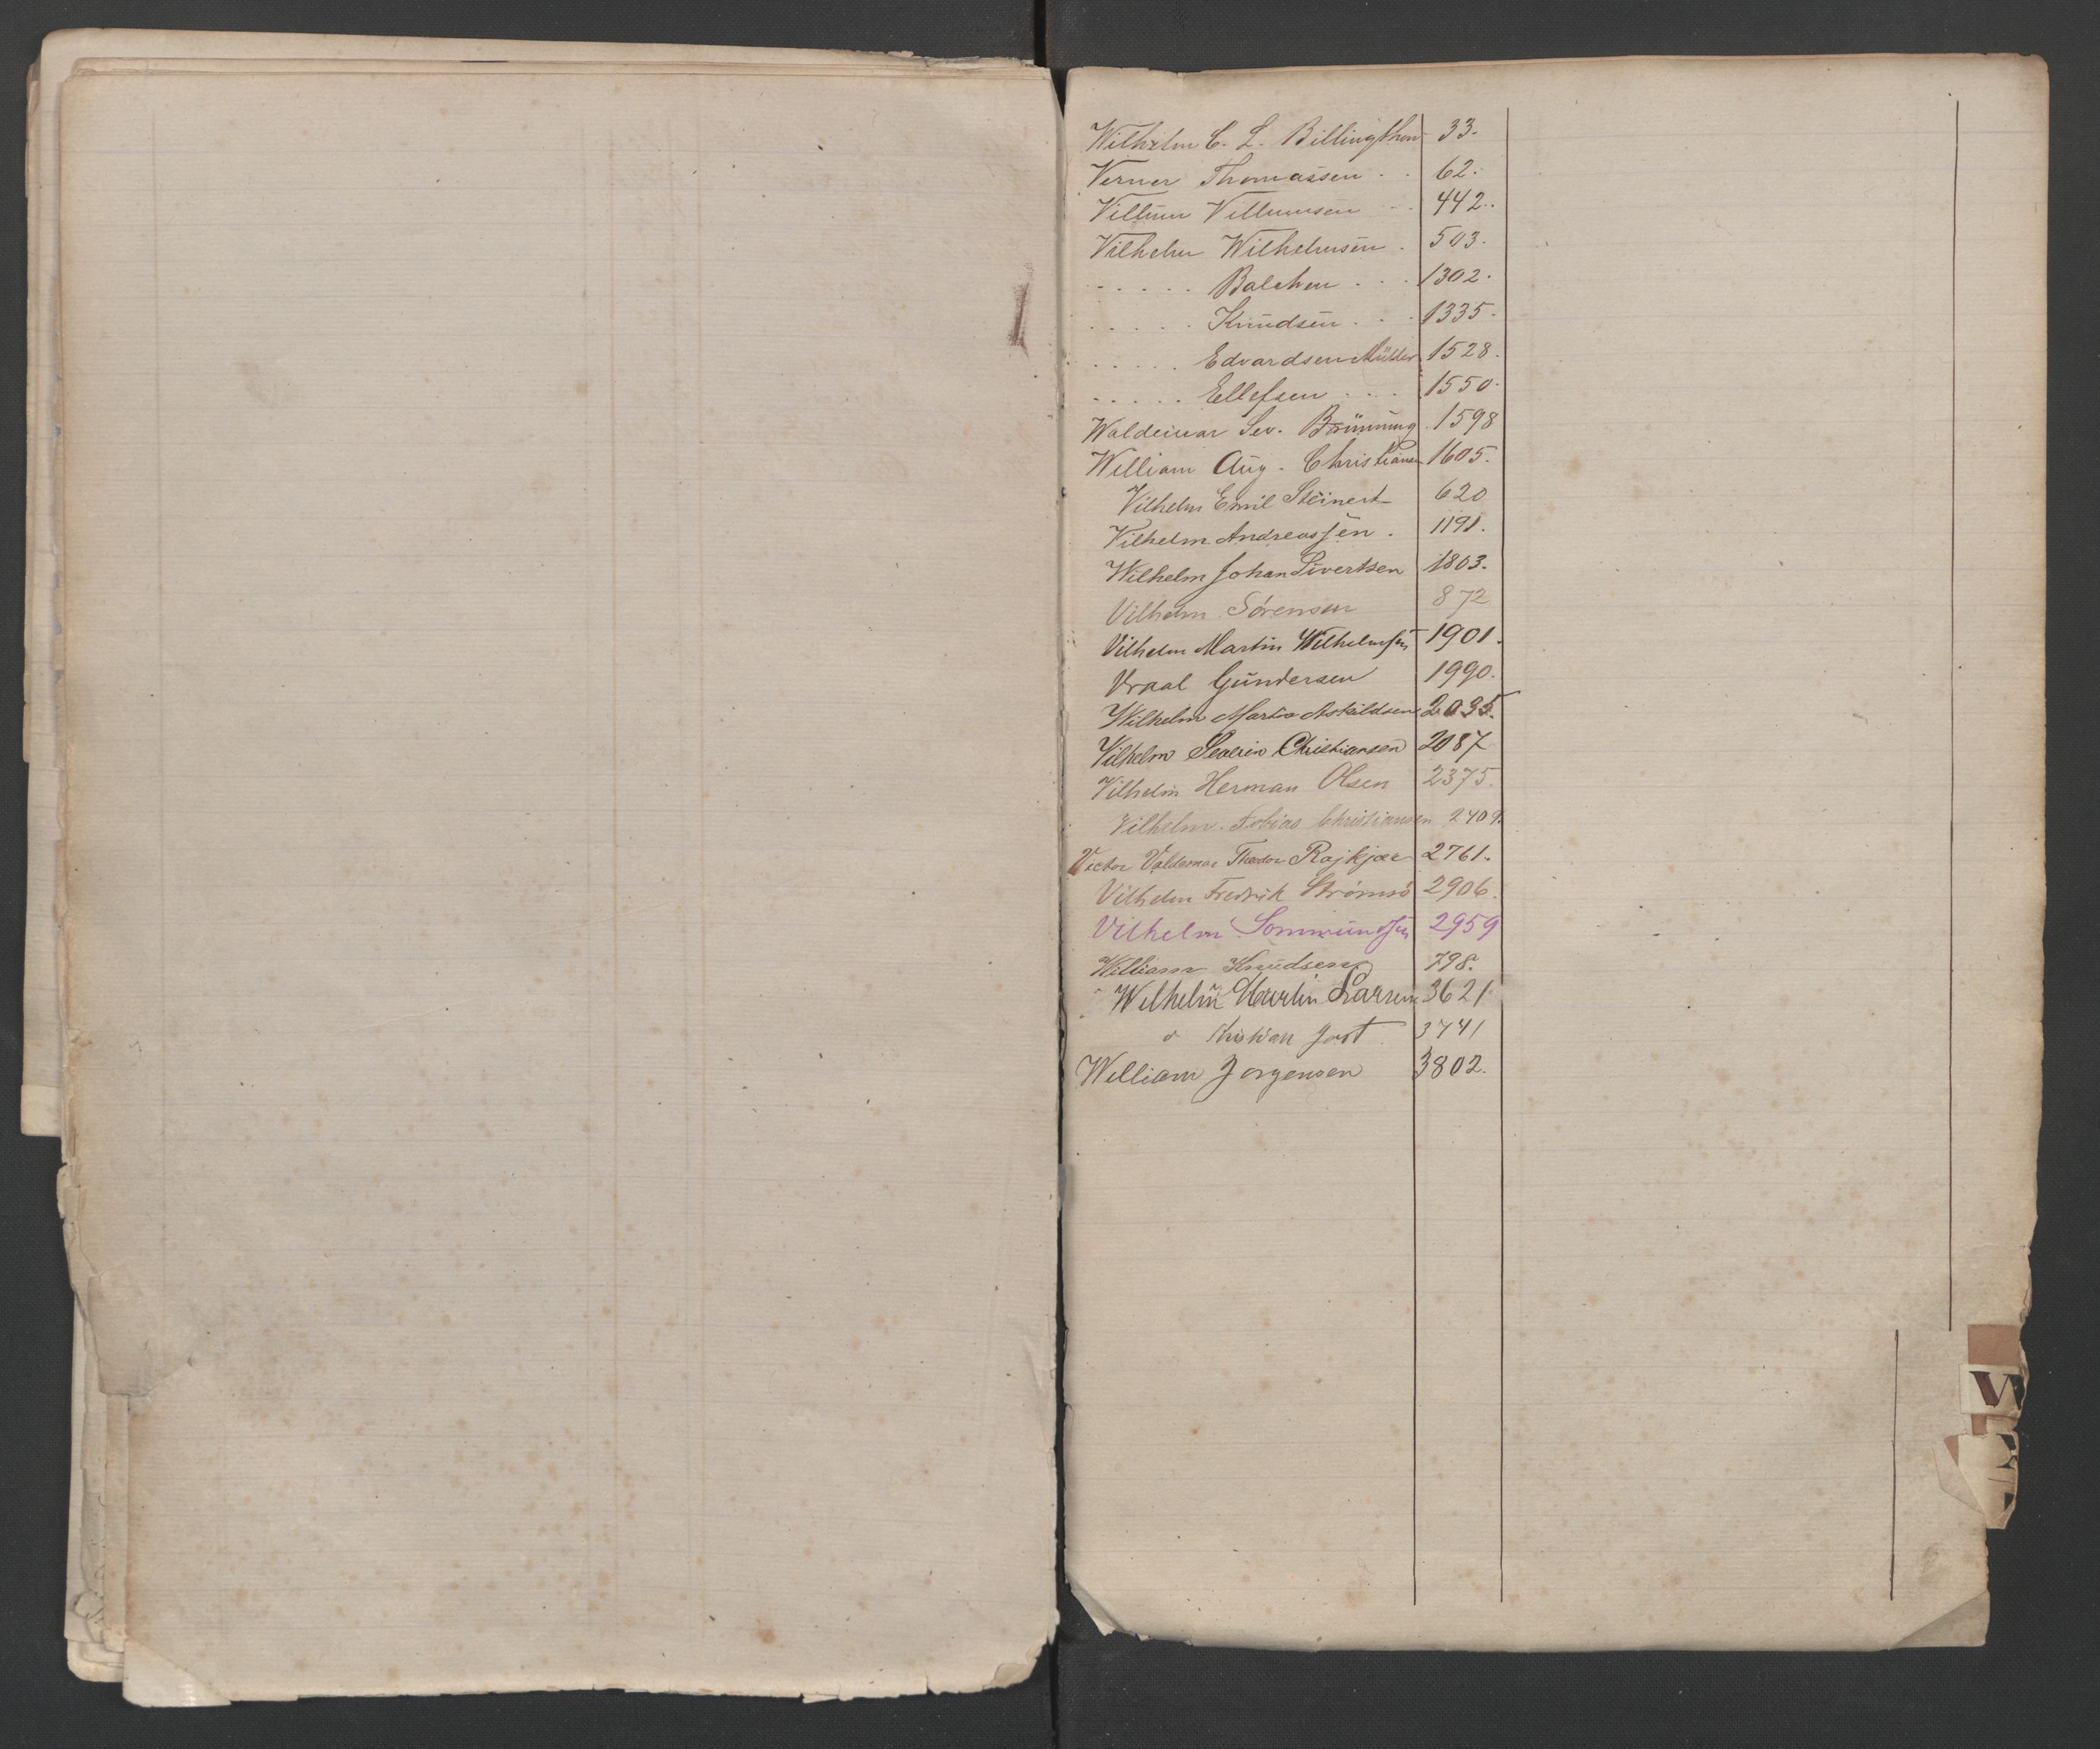 Wilhelm C. L. Billingthon 33.
Verner Thomassen . . 62.
Villum Villumsen - . 442.
Vilhelm Wilhelmsen . 503.
- . . . . Balchen . . . 1302.
. . . . . Knudsen . . . 1335.
. . . . . Edvardsen Müller 1528.
. . . . . Ellefsen . . . . 1550.
Waldemar Sev. Brünning 1598
William Aug. Christiansen 1605.
Vilhelm Emil Steinert 620
Vilhelm Andreassen . 1191.
Wilhelm Johan Sivertsen 1803.
Vilhelm Sörensen 872
Vilhelm Martin Wilhelmsen 1901.
Vraal Gundersen 1990.
Wilhelm Martin Askildsen 2035.
Vilhelm Severin Christiansen 2087
Vilhelm Herman Olsen 2375.
Vilhelm Tobias Christiansen 2409.
Victor Valdemar Theodor Rojkjær 2761.
Vilhelm Fredrik Strömsö 2906.
Vilhelm 2959
William Knudsen 798.
Wilhelm Martin Larsen 3621
" Kristian Jost 3741
William Jorgensen 3802.
W